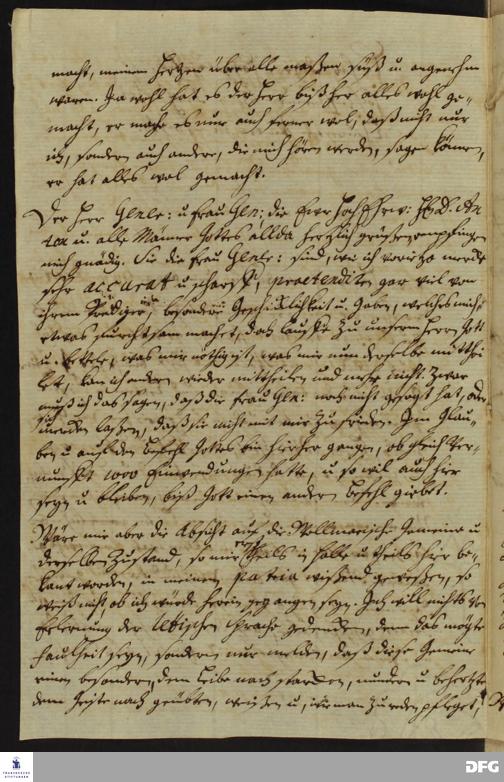 macht, meinem Hertzen über alle maßen süß u. angenehm
waren. Ja wohl hat es der Herr bißher alles wohl ge-
macht, er mache es nur auch ferner wol, daß nicht nur
ich, sondern auch andere, die mich hören werden, sagen können,
er hat alles wol gemacht.
Der Herr Genle: u frau Gen; die Ewr HochEhrw: H. D. An
ton u. alle Männer Gottes allda hertzlich grüßen, empfingen
mich gnädig. Die frau Genle: sind, wie ich vorietzo mercke
sehr accurat u scharf, praetendiren gar viel von
ihrem Prediger, besondere Geschicklichkeit u. Gaben, welches mich
etwas furchtsam machet, doch lauffe zu unserm Herrn Gott
u. bettele, was mir nöthig ist, was mir nun derselbe mitthei
let, kan ich andern wieder mittheilen und mehr nicht. Zwar
muß ich das sagen, daß die frau Gen: noch nicht gesagt hat, oder
mercken laßen, daß sie nicht mit mir zu frieden. Im Glau-
ben u. auf den Befehl Gottes bin hierher gangen, ob gleich Ver-
nunfft 1000 Einwendungen hatte, u so wil auch hier
seyn u bleiben, biß Gott einen andern Befehl giebet.
Wäre mir aber die Absicht auf die Wollmarische Gemeine u
derselben Zustand, so mir theils in Halle u theils hier be-
kant worden, in meinem patria wißend geweßen, so
weiß nicht ob ich würde herein gegangen seyn. Ich will nichts von
Erlernung der lettischen Sprache gedencken, denn das möchte
faulheit seyn, sondern nur melden, daß diese Gemeine
einen besondern, dem Leibe nach starcken, muntern u behertzten
dem Geiste nach geübten, weisen u, wie man zu reden pfleget,
FRANCKESCHE STIFTUNGEN
DFG